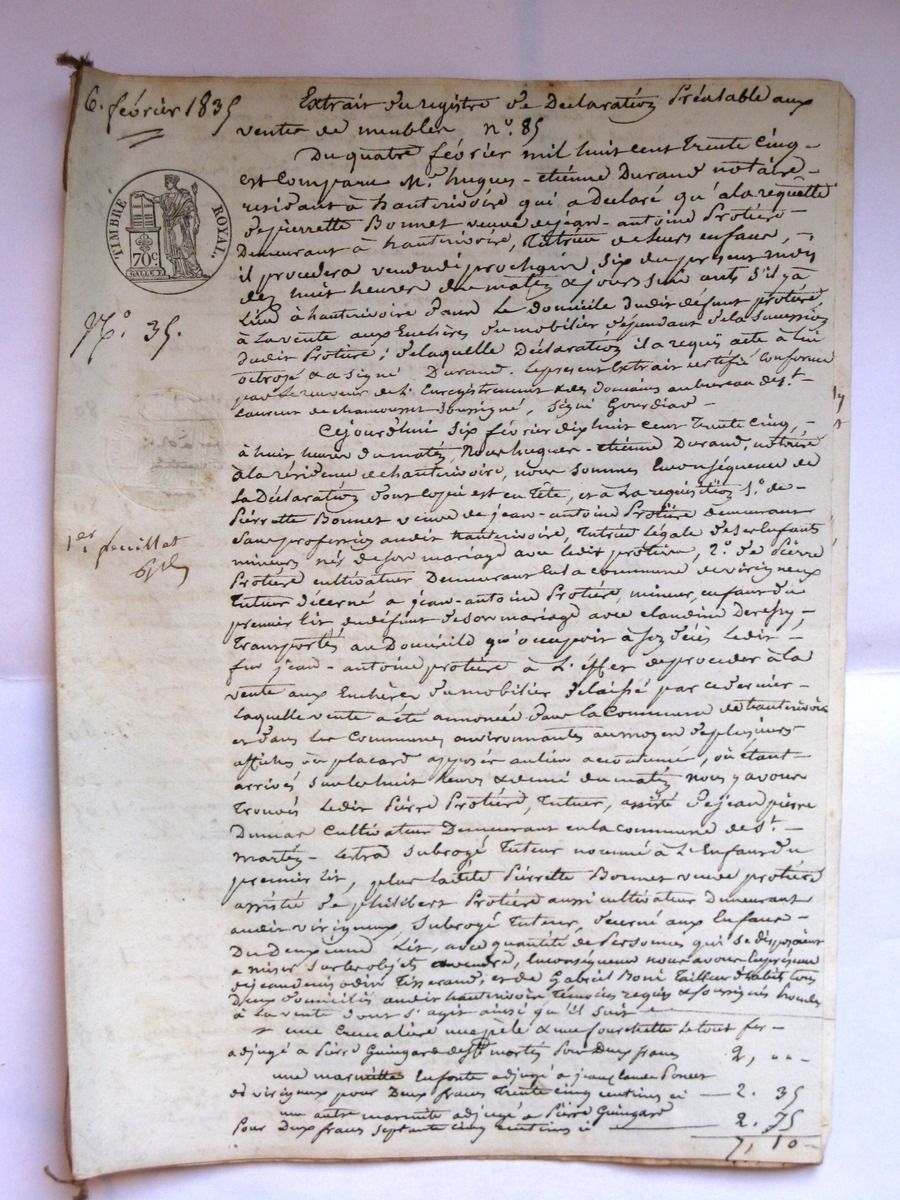 6. février 1835
Extrait du registre de Déclaration Préalable aux
ventes de meubles n°. 85
TIMBRE ROYAL.
70c.
N°. 35.
1er feuillet
Du quatre février mil huit cent trente cinq -
est comparu Me. hugues - étienne Durand notaire -
résidant à hauterivoire qui a déclaré qu'à la requête
de pierrette Bonnet veuve de jean - antoine Protière
Demeurant à hauterivoire, tutrice de leurs enfans, -
il procedera vendredi prochain six du présent mois
dez huit heures du matin & jours suivants s'il y a
lieu à hauterivoire dans le domicile dudit défunt protière,
à la vente aux Enchères du mobilier dépendant de la succession
dudit Protière; de laquelle Déclaration il a requis acte à lui
octroyé & a signé Durand. le présent Extrait certifié conforme
par le receveur de l'Enregistrement & des Domaines au bureau de st.
Laurent de chamousset soussigné, signé Gourdiat -
Cejourd'hui six février dix huit cent trente cinq, -
à huit heures du matin, Nous hugues - étienne Durand, notaire
à la résidence d'hauterivoire, nous sommes En conséquence de
la Déclaration dont copie est en tête, et à la requisition 1°. de -
Pierrette Bonnet veuve de jean - antoine Protière demeurant
sans profession audit hauterivoire, tutrice légale de ses Enfants
mineurs nés de son mariage avec ledit protière, 2°. de Pierre
Protière cultivateur Demeurant en la commune de virigneux
tuteur décerné à jean - antoine Protière, mineur, enfant du
premier lit, dudit défunt de son mariage avec claudine
transportés au Domicile qu'occupoit à son décès ledit -
feu jean - antoine protière à l'effet de proceder à la
vente aux Enchères du mobilier délaissé par ce dernier -
laquelle vente a été annoncée dans la commune de hauterivoire
et dans les communes environnantes au moyen de plusieurs
affiches ou placards apposés au lieu accoutumé, où étant -
arrivés sur les huit heures & demie du matin nous y avons
trouvés ledit Pierre Protière, tuteur, assisté de jean pierre
Dumas cultivateur Demeurant en la commune de St. -
martin - lestra subrogé tuteur nommé à l'Enfant du
premier lit, plus ladite Pierrette Bonnet veuve protière
assistée de philibert Protière aussi cultivateur demeurant
audit virigneux, subrogé tuteur, décerné aux Enfans -
Du Deuxième Lit, avec quantité de Personnes qui se disposoient
a miser sur les objets à vendre, En conséquence nous avons En présence
de jean denis odin tisserand, et de Gabriel Boni tailleur d'habits tous
deux domiciliés audit hauterivoire témoins requis & soussignés procédé
à la vente dont s'agit ainsi qu'il suit
une Cremalière une pele & une fourchette le tout fer -
adjugé à Pierre Guingard de St martin pour Deux francs 2, "
une marmitte En fonte adjugé à jean claude Poncet
de virigneux pour Deux francs trente cinq centimes ci 2. 35
une autre marmite adjugé à Pierre Guingard
Pour Deux francs septante cinq centimes ci 2. 75
7, 10